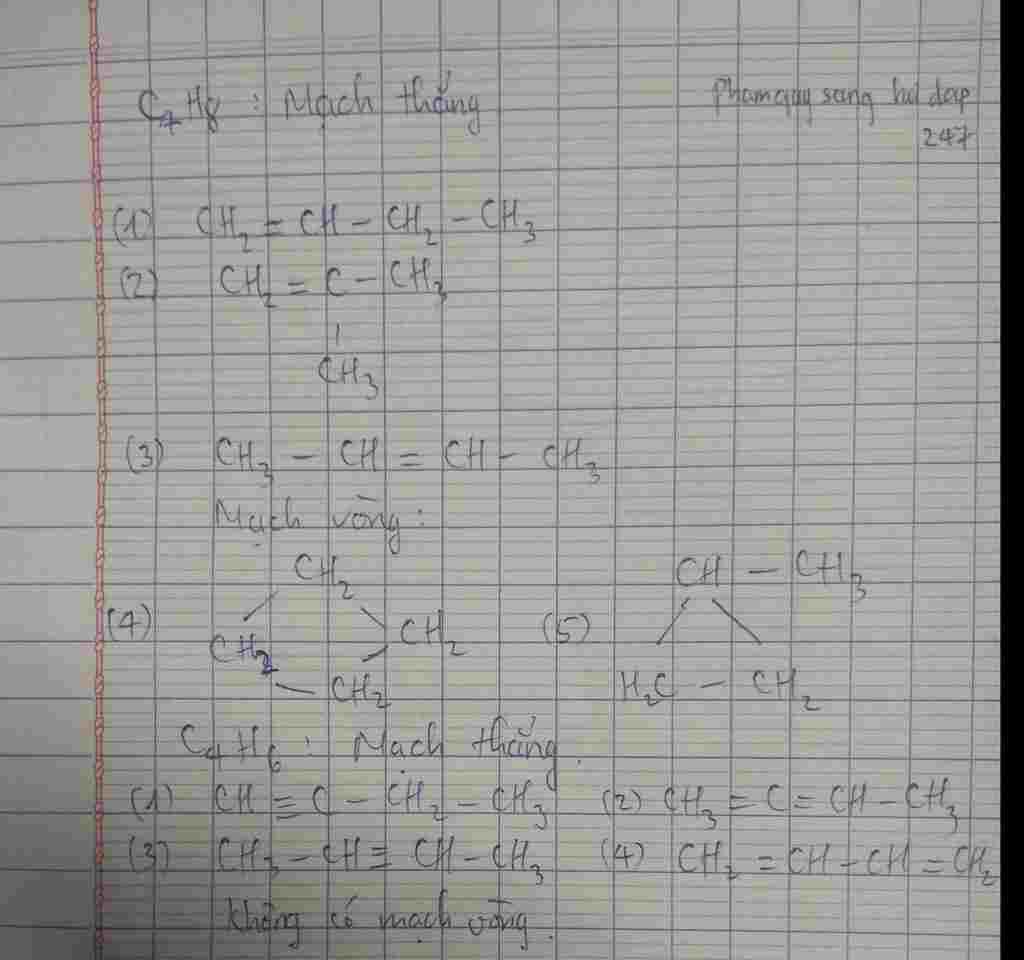 C4H8 : Mạch thẳng
Phamquysang hoidap
247
(1) CH2 = CH - CH2 - CH3
(2) CH2 = C - CH3
CH3
(3) CH3 - CH = CH - CH3
Mạch vòng:
(4) CH2
CH2 CH2
CH2
(5) CH - CH3
H2C - CH2
C4H6 : Mạch thẳng.
(1) CH ≡ C - CH2 - CH3 (2) CH3 = C = CH - CH3
(3) CH3 - CH ≡ CH - CH3 (4) CH2 = CH - CH = CH2
Không có mạch vòng.